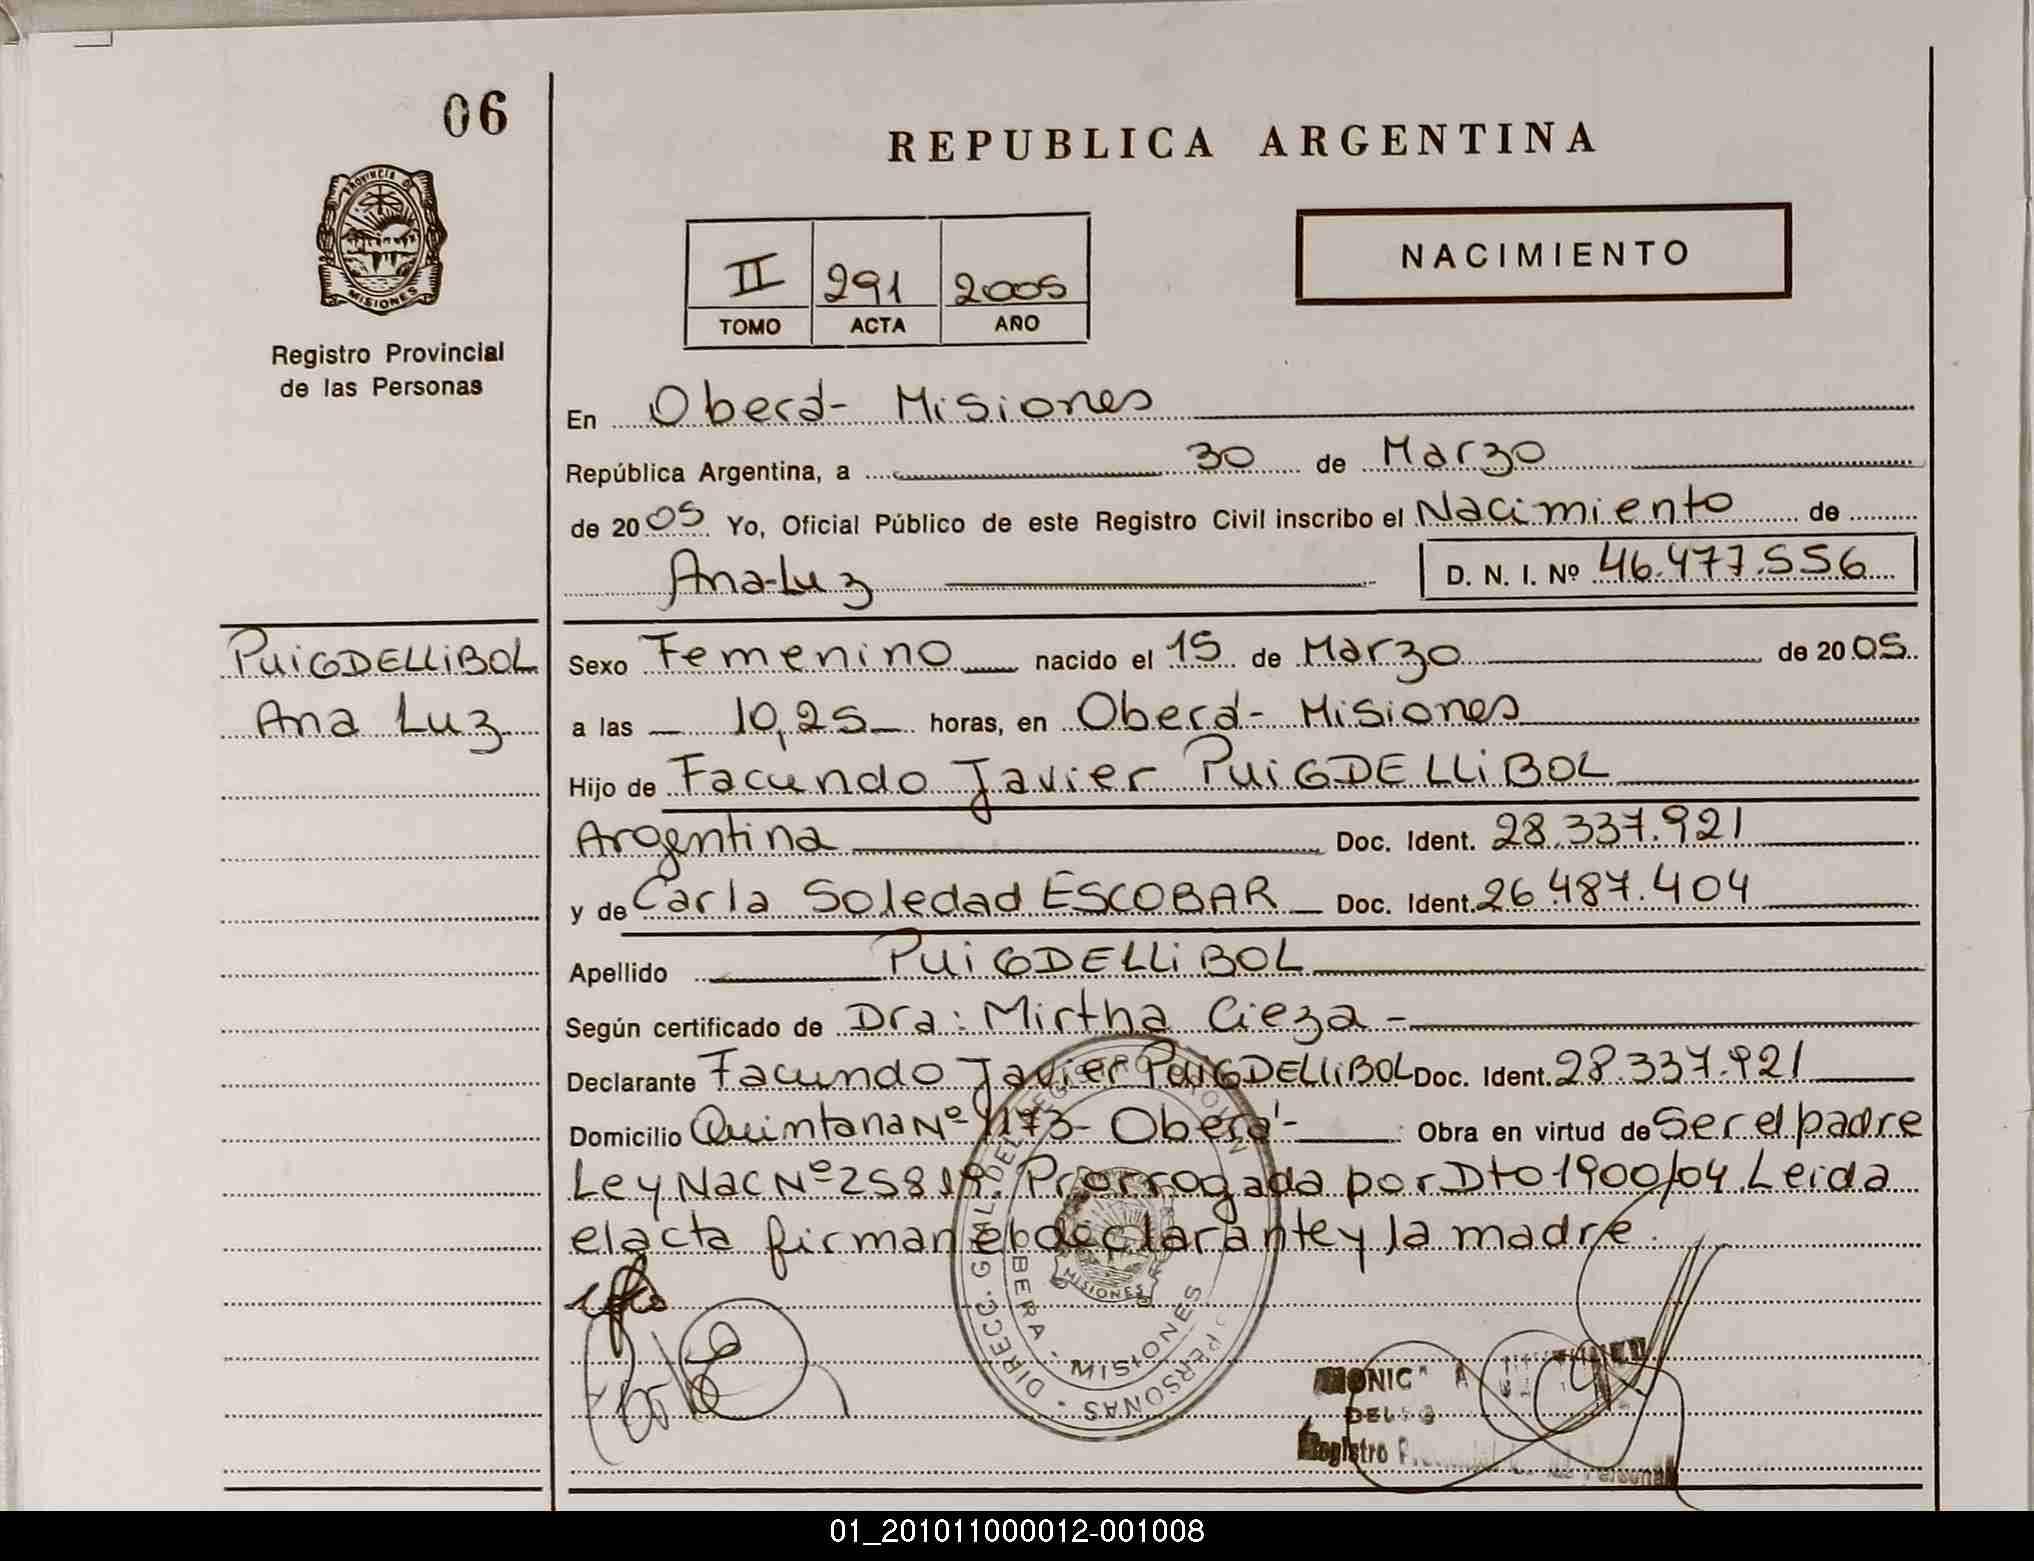 06
REPUBLICA ARGENTINA
PROVINCIA DE
MISIONES
Registro Provincial
de las Personas
II 291 2005
TOMO ACTA AÑO
NACIMIENTO
En Oberá- Misiones
República Argentina, a 30 de Marzo
de 2005 Yo, Oficial Público de este Registro Civil inscribo el Nacimiento de
Ana-Luz D. N. I. Nº 46.477.556
PUIGDELLIBOL
Ana Luz
Sexo Femenino nacido el 15 de Marzo de 2005
a las 10,25 horas, en Oberá- Misiones
Hijo de Facundo Javier PUIGDELLIBOL
Argentina Doc. Ident. 28.337.921
y de Carla Soledad ESCOBAR Doc. Ident. 26.487.404
Apellido PUIGDELLIBOL
Según certificado de Dra: Mirtha Cieza -
Declarante Facundo Javier PUIGDELLIBOL Doc. Ident. 28.337.921
Domicilio Quintana Nº 1173- Oberá- Obra en virtud de Ser el padre
Ley Nac Nº 25819. Prorrogada por Dto 1900/04. Leida
el acta firman el declarante y la madre.
DIRECC. GRAL. DEL PERSONAS
OBERA - MISIONES
MISIONES
Registro
01_201011000012-001008